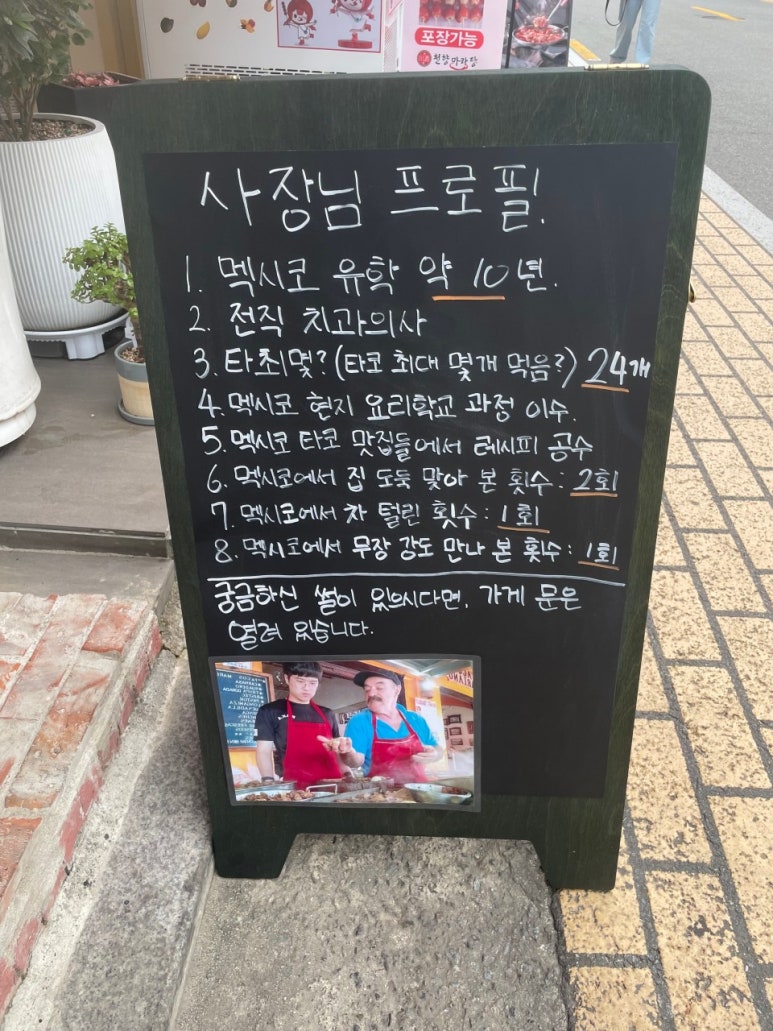 포장가능
천향마라탕
사장님 프로필!
1. 멕시코 유학 약 10년.
2. 전직 치과의사
3. 타최몇? (타코 최대 몇개 먹음?) 24개
4. 멕시코 현지 요리학교 과정 이수.
5. 멕시코 타코 맛집들에서 레시피 공수
6. 멕시코에서 집 도둑 맞아 본 횟수 : 2회
7. 멕시코에서 차 털린 횟수 : 1회
8. 멕시코에서 무장 강도 만나 본 횟수 : 1회
궁금하신 썰이 있으시다면, 가게 문은
열려 있습니다.